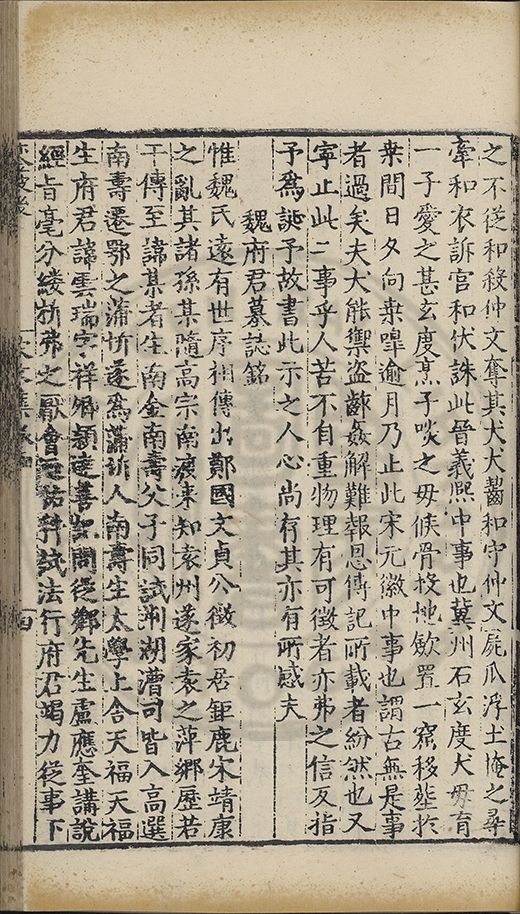 之不從和殺仲文奪其犬犬齧和守仲文屍爪浮土掩之尋
牽和衣訴官和伏誅此晉義熙中事也冀州石玄度犬毋育
一子愛之甚玄度烹子啖之毋候骨投地歛置一窟移塟於
桒間日夕向桒嘷逾月乃止此宋元徽中事也謂古無是事
者過矣夫犬能禦盗辭姦解難報恩傳記所載者紛然也又
寧止此二事乎人苦不自重物理有可徴者亦弗之信反指
予為誕予故書此示之人心尚存其亦有所感夫
魏府君墓誌銘
惟魏氏遠有世序相傳出鄭國文貞公徵初居鉅鹿宋靖康
之亂其諸孫某隨高宗南渡来知袁州遂家袁之萍鄉歷若
干傳至諱某者生南金南壽父子同試荆湖漕司皆入高選
南壽遷鄂之蒲圻遂為蒲圻人南壽生太學上舍天福天福
生府君諱雲瑞字祥卿穎達善記問從鄉先生盧應奎講說
經旨毫分縷析弗之厭會延祐科試法行府君竭力從事下